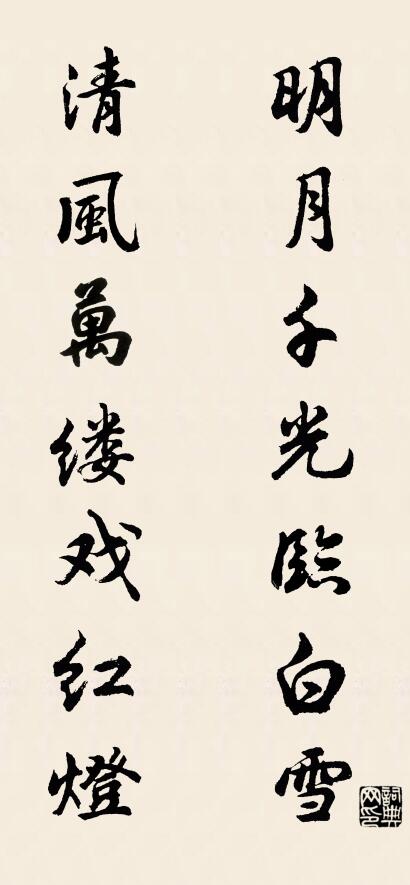 明月千光臨白雪
清風萬缕戏红燈
詞典网印